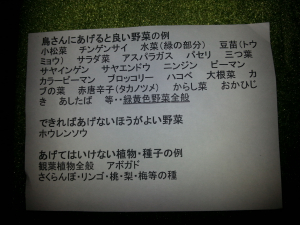 鳥さんにあげると良い野菜の例
小松菜　チンゲンサイ　水菜(緑の部分)　豆苗(トウ
ミョウ)　サラダ菜　アスパラガス　パセリ　三つ葉
サヤインゲン　サヤエンドウ　ニンジン　ピーマン
カラーピーマン　ブロッコリー　ハコベ　大根菜　カ
ブの葉　赤唐辛子(タカノツメ)　からし菜　おかひじ
き　あしたば　等・・緑黄色野菜全般
できればあげないほうがよい野菜
ホウレンソウ
あげてはいけない植物・種子の例
観葉植物全般　アボガド
さくらんぼ・リンゴ・桃・梨・梅等の種